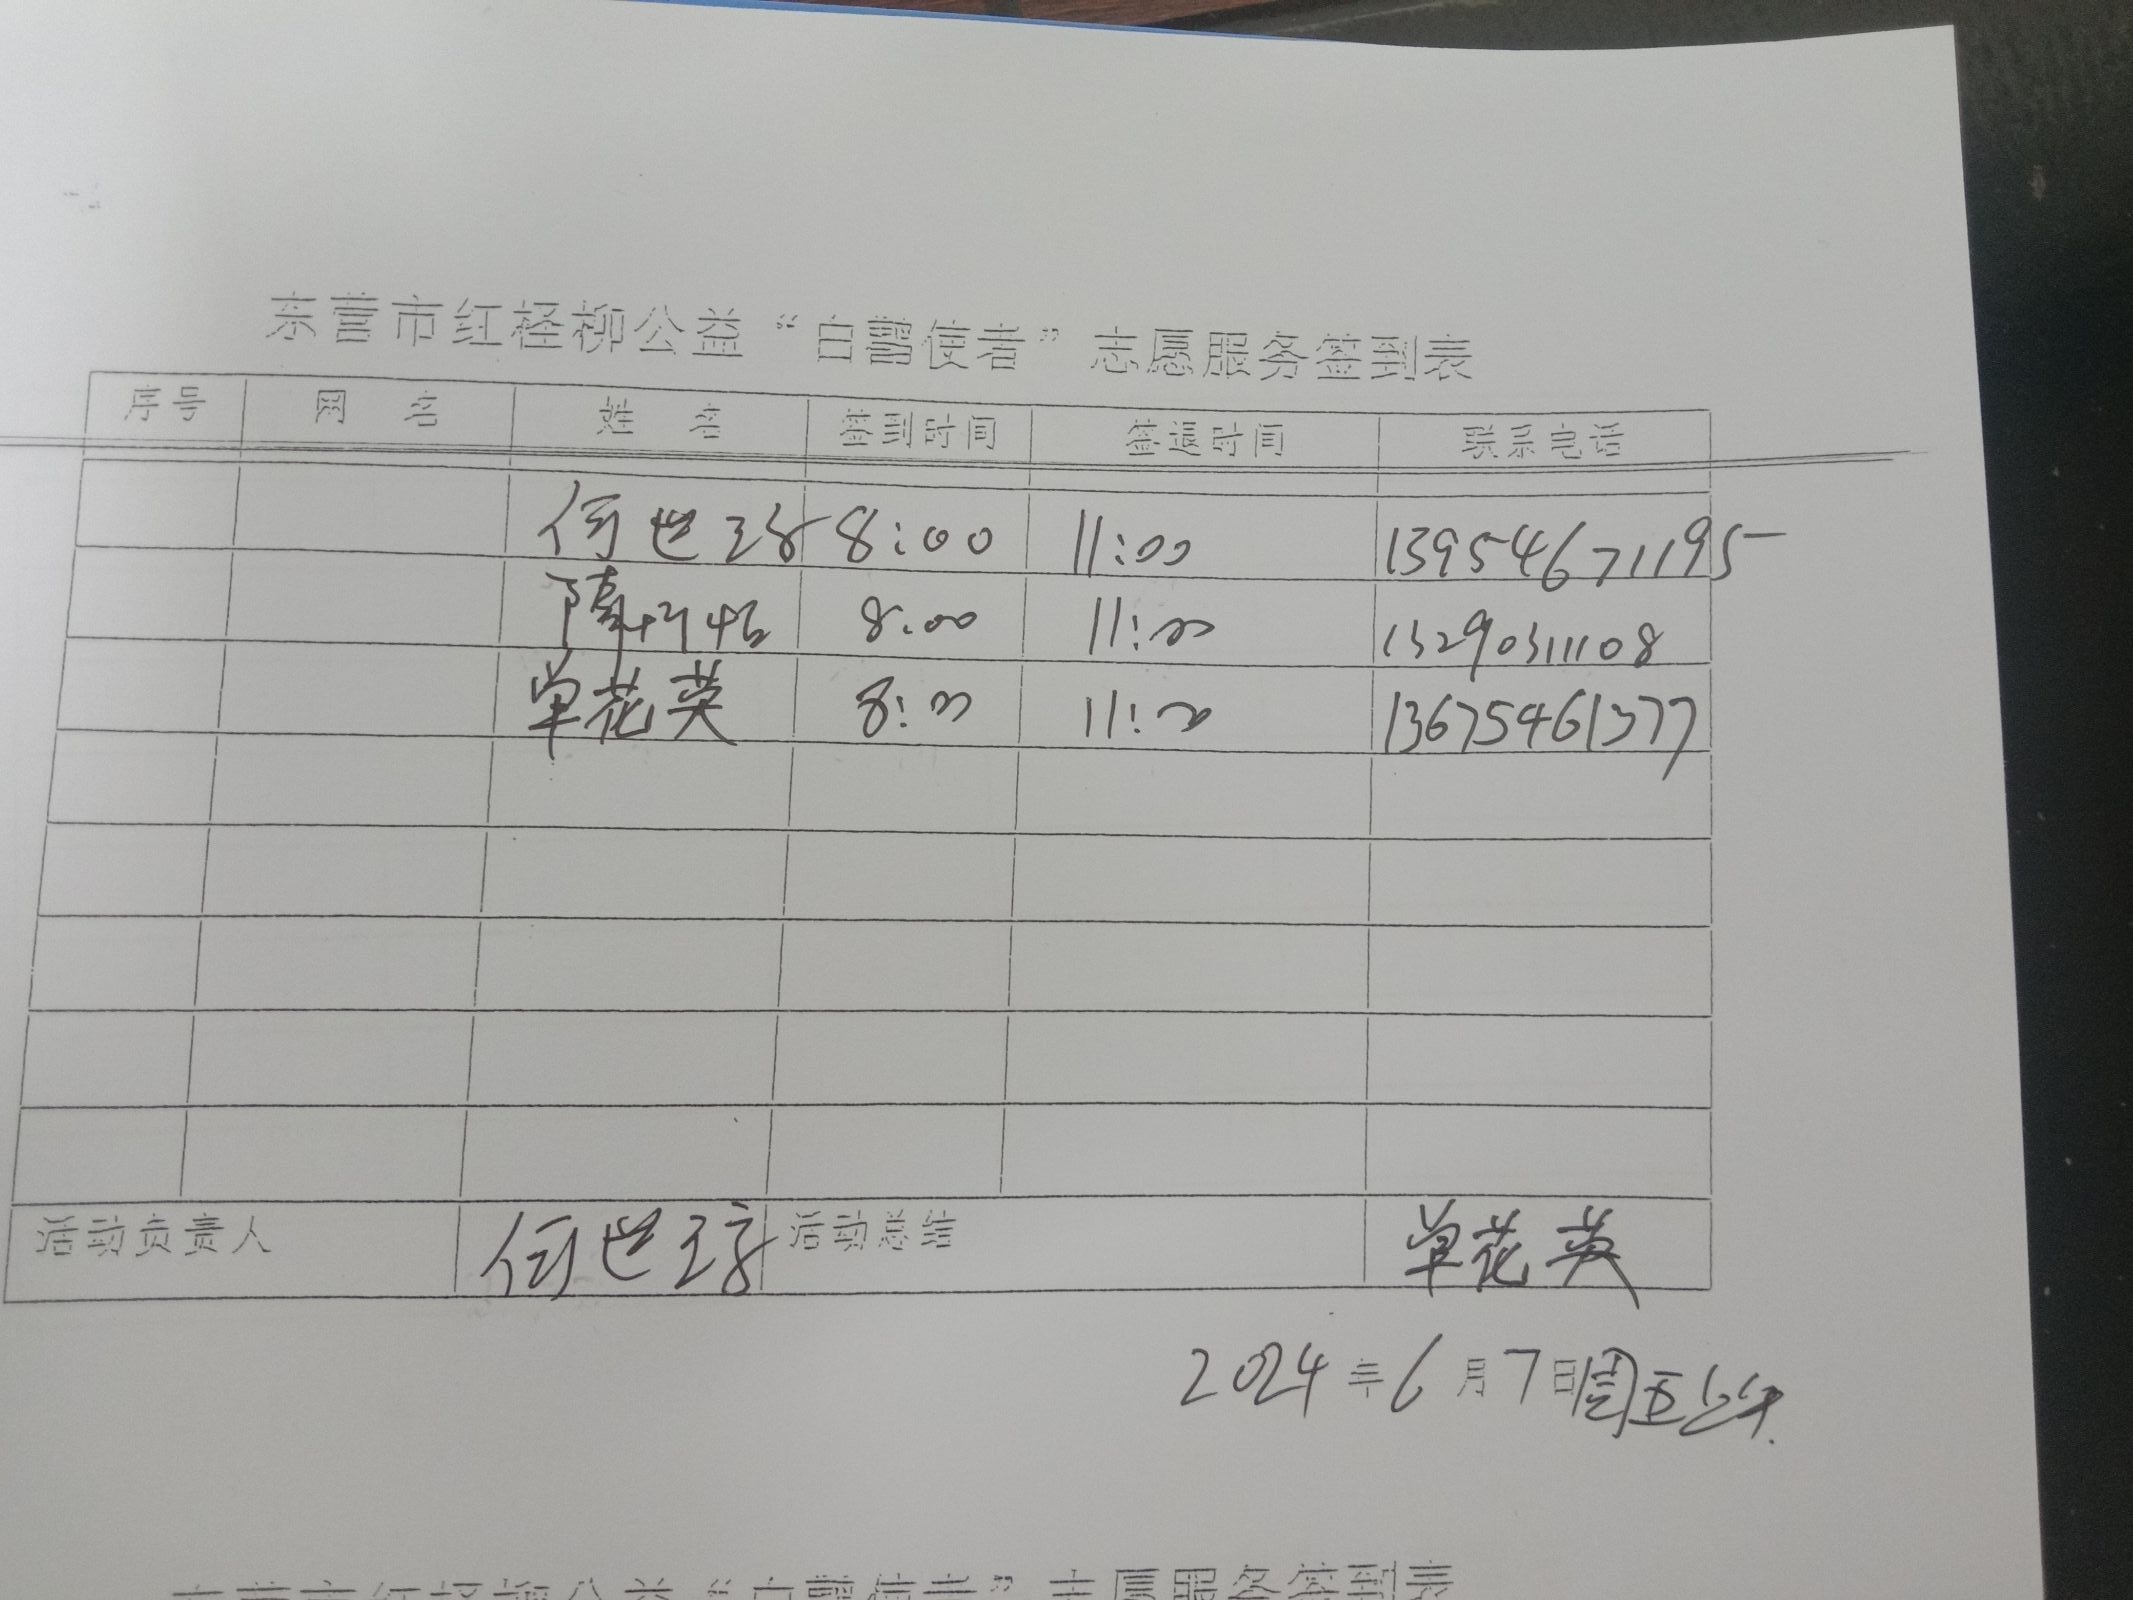 东营市红柽柳公益“白鹭使者”志愿服务签到表
序号 网名 姓名 签到时间 签退时间 联系电话
何世 8:00 11:00 13954671195
隋 8:00 11:00 13290311108
单花英 8:00 11:00 13675461377
活动负责人 何世 活动总结 单花英
2024年6月7日周五上午.
东营市红柽柳公益“白鹭使者”志愿服务签到表